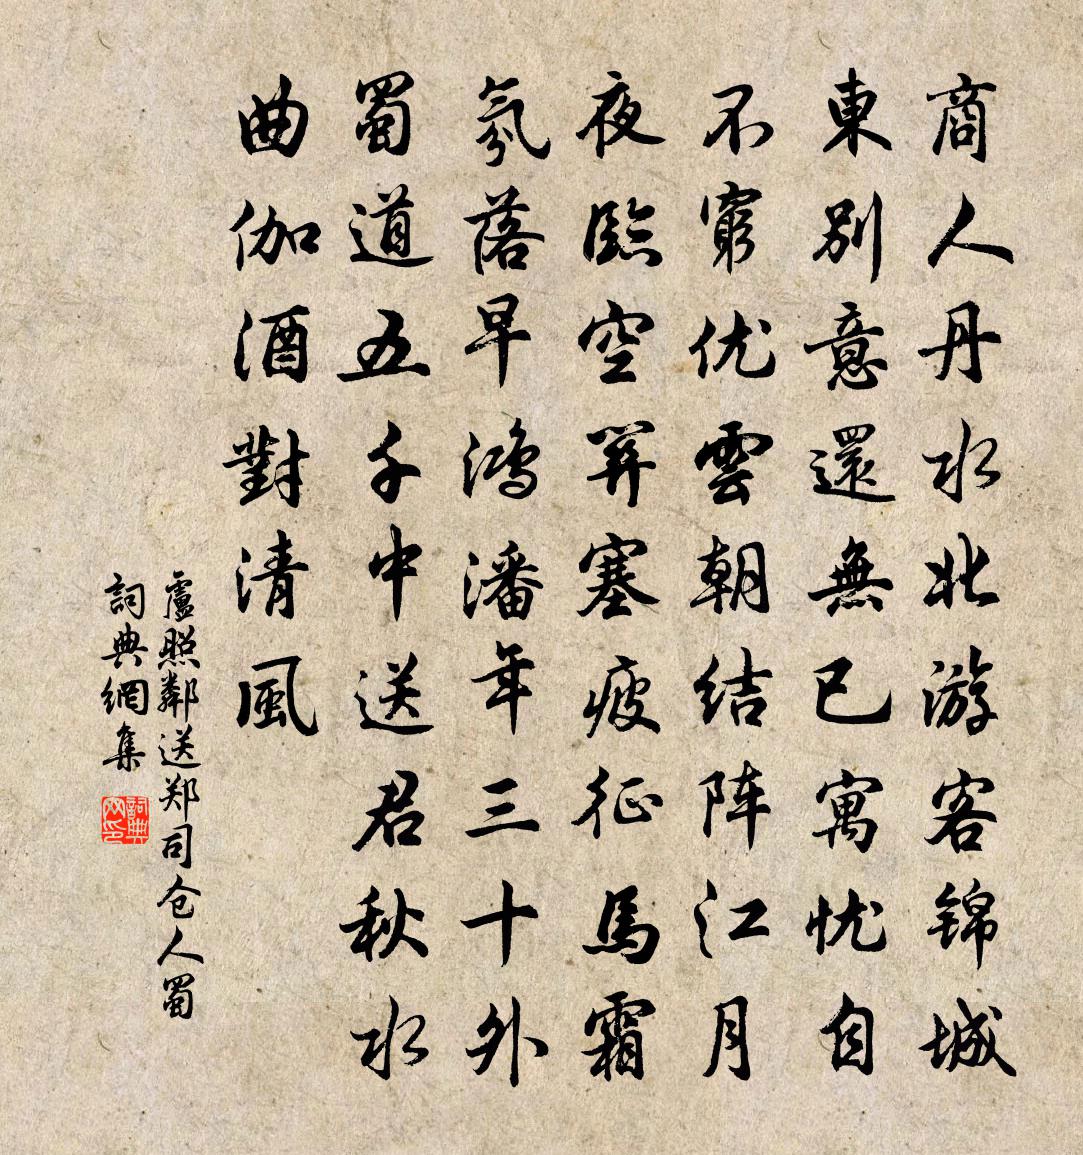 商人丹水北游客锦城
東别意還無已寓忧自
不窮优雲朝結阵江月
夜臨空关塞疲征馬霜
氛落早鸿潘年三十外
蜀道五千中送君秋水
曲伽酒對清風
盧照鄰送郑司仓人蜀
詞典網集
詞典网印